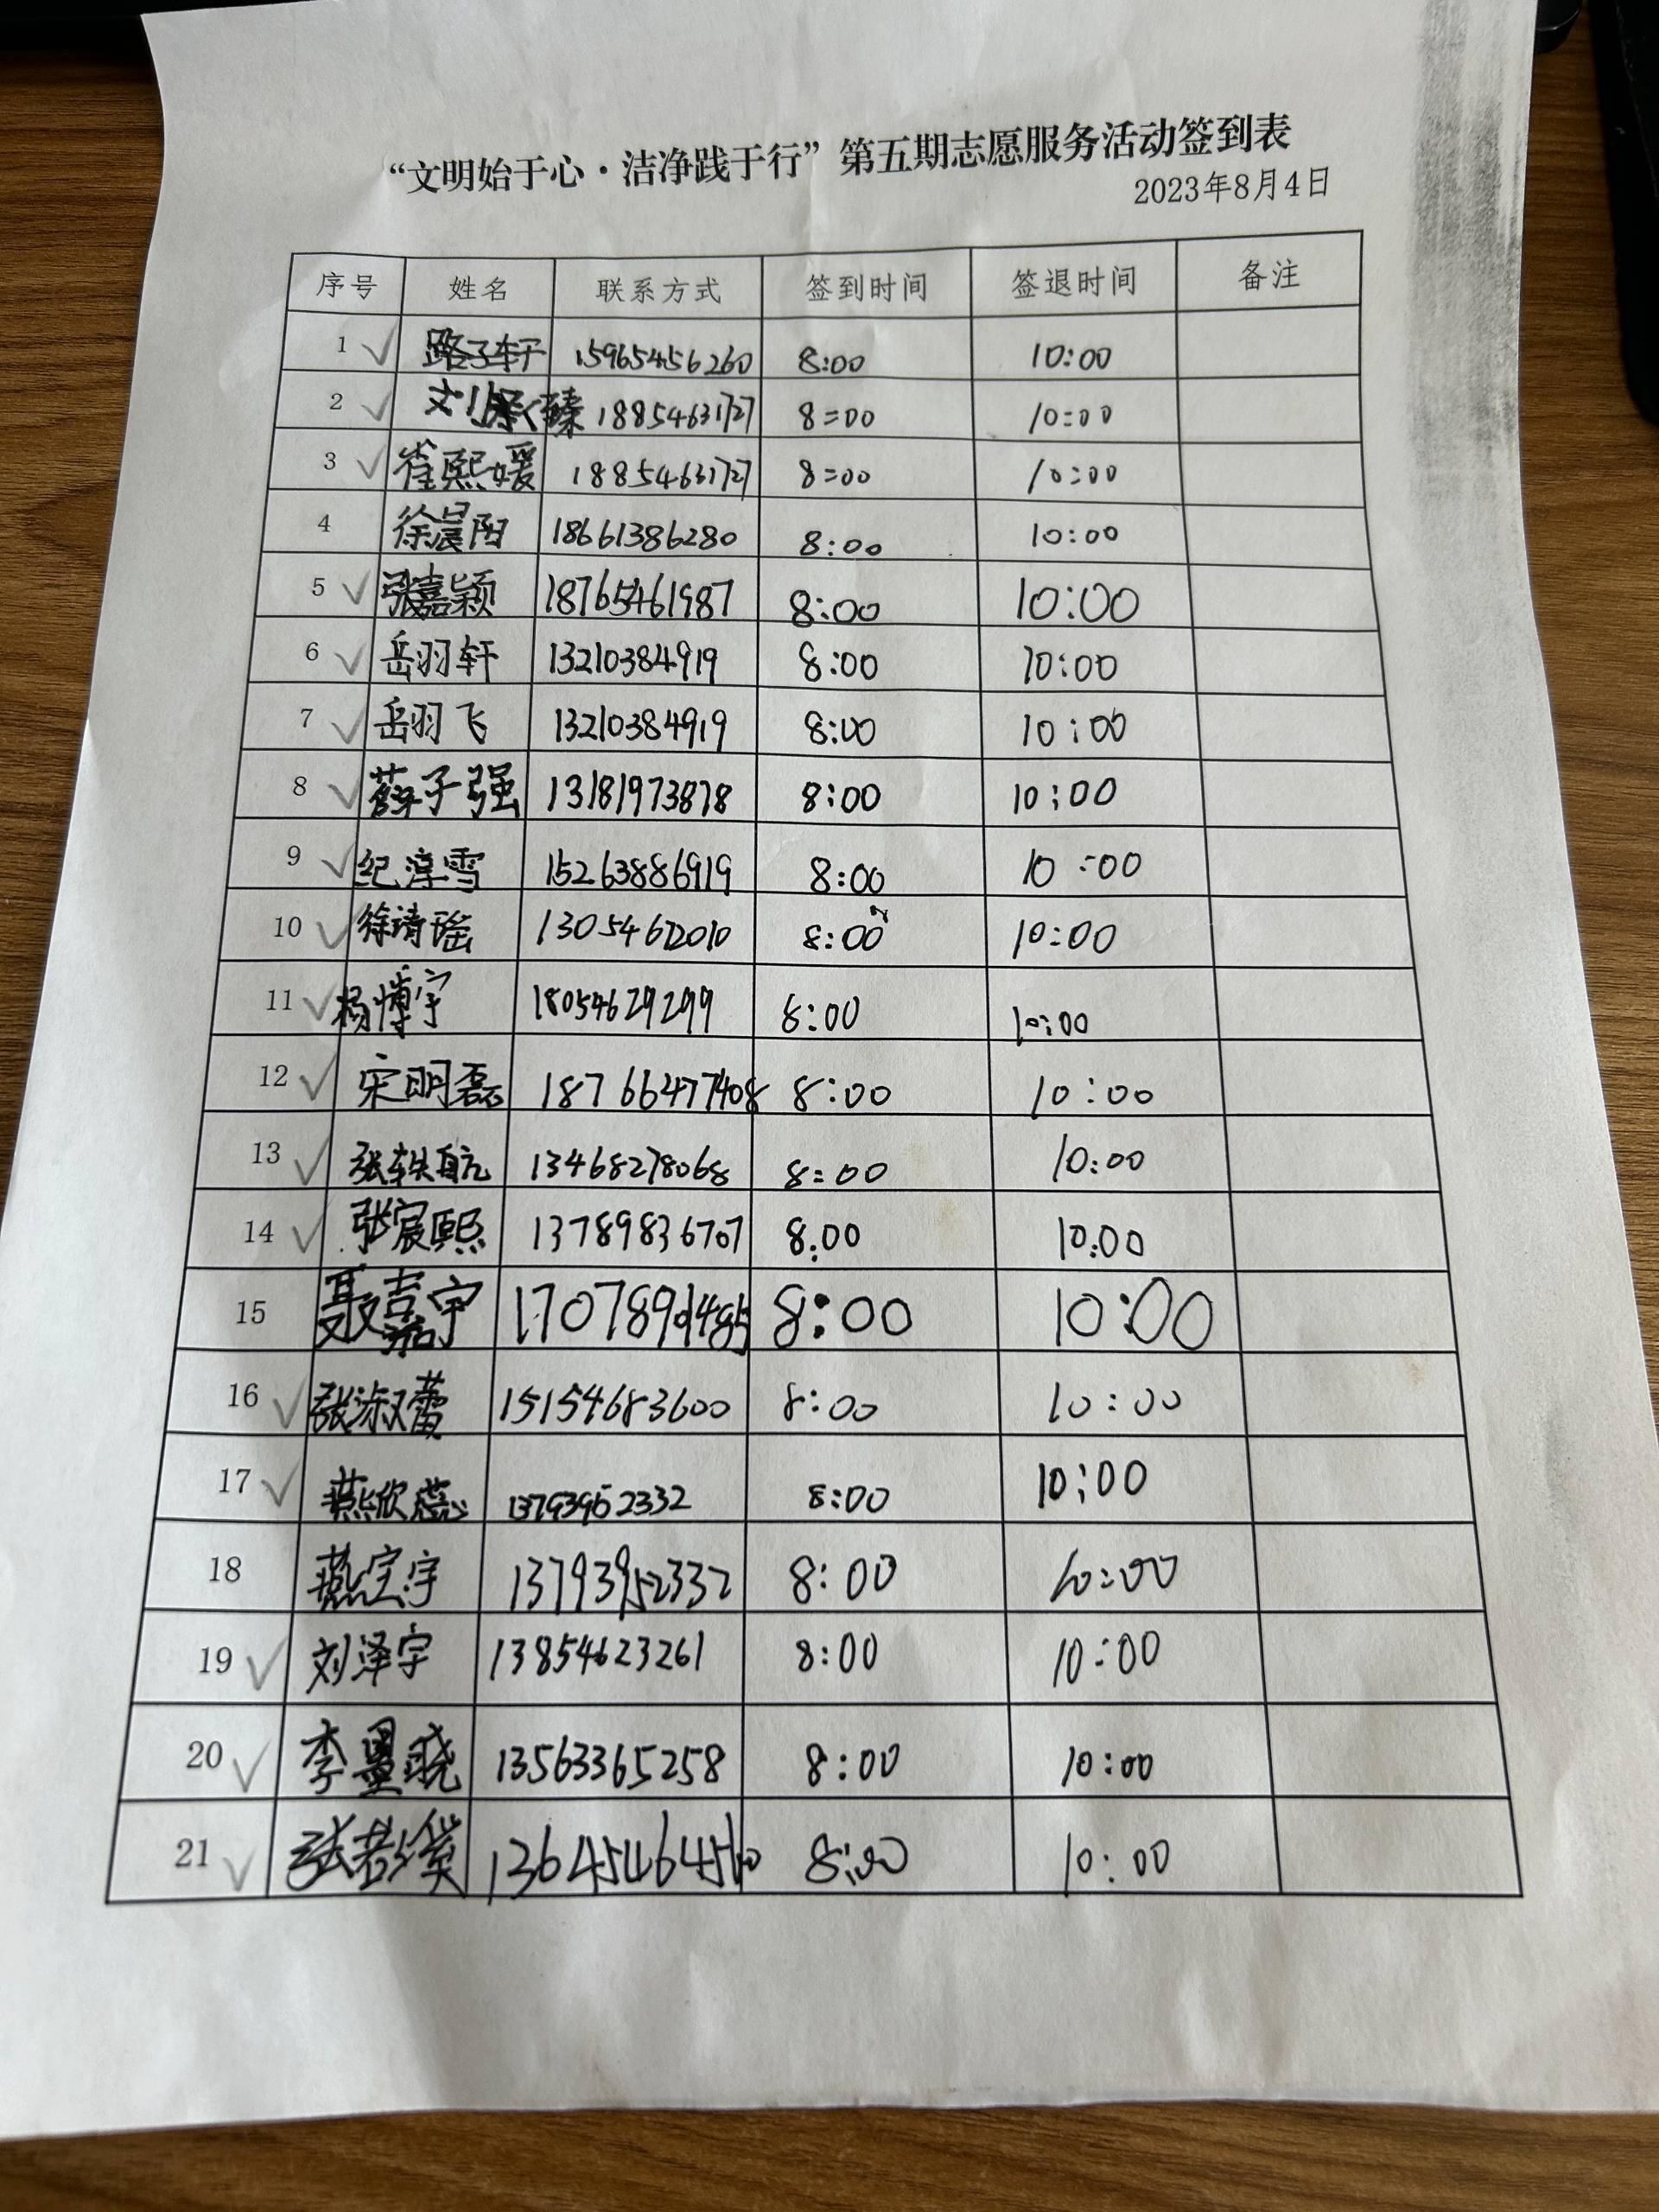 “文明始于心·洁净践于行”第五期志愿服务活动签到表
2023年8月4日
序号 姓名 联系方式 签到时间 签退时间 备注
1 ✓ 路子轩 15965456260 8:00 10:00
2 ✓ 刘承臻 18854631727 8:00 10:00
3 ✓ 崔熙媛 18854631727 8:00 10:00
4 徐晨阳 18661386280 8:00 10:00
5 ✓ 张嘉颖 18765461987 8:00 10:00
6 ✓ 岳羽轩 13210384919 8:00 10:00
7 ✓ 岳羽飞 13210384919 8:00 10:00
8 ✓ 薛子强 13181973878 8:00 10:00
9 ✓ 纪淳雪 15263886919 8:00 10:00
10 ✓ 徐靖瑶 13054672010 8:00 10:00
11 ✓ 杨博宇 18054629299 8:00 10:00
12 ✓ 宋明磊 18766477408 8:00 10:00
13 ✓ 张轶航 13468278068 8:00 10:00
14 ✓ 张宸熙 13789836707 8:00 10:00
15 聂嘉宇 8:00 10:00
16 ✓ 张淑蕾 15154683600 8:00 10:00
17 ✓ 燕欣蕊 13793952332 8:00 10:00
18 燕宝宇 13793952332 8:00 10:00
19 ✓ 刘泽宇 13854623261 8:00 10:00
20 ✓ 李墨晓 13563365258 8:00 10:00
21 ✓ 8:00 10:00